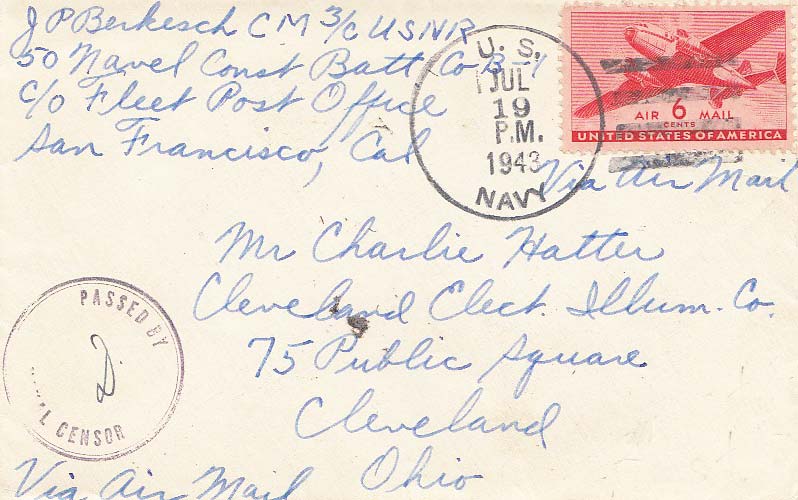 J P Berkesch CM 3/c USNR
50 Navel Const Batt Co B-1
c/o Fleet Post Office
San Francisco, Cal
U. S.
JUL
19
P.M.
1943
NAVY
AIR 6 MAIL
CENTS
UNITED STATES OF AMERICA
Via Air Mail
Mr Charlie Hatter
Cleveland Elect. Illum. Co.
75 Public Square
Cleveland
Ohio
PASSED BY
D.
NAVAL CENSOR
Via Air Mail